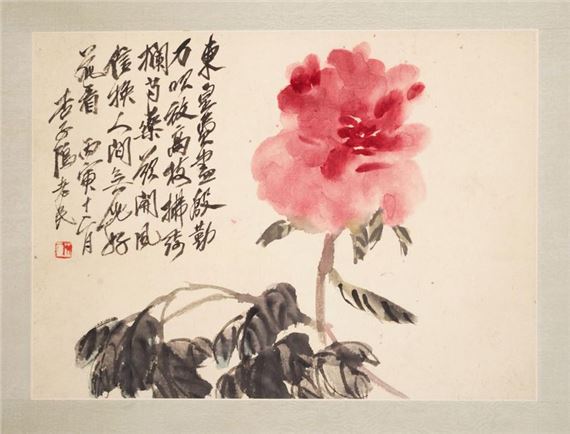 東皇費盡殷勤
力吹放高枝拂
欄芍藥開風
信換人間無此好
花看 丙寅十二月
杏子隝老民